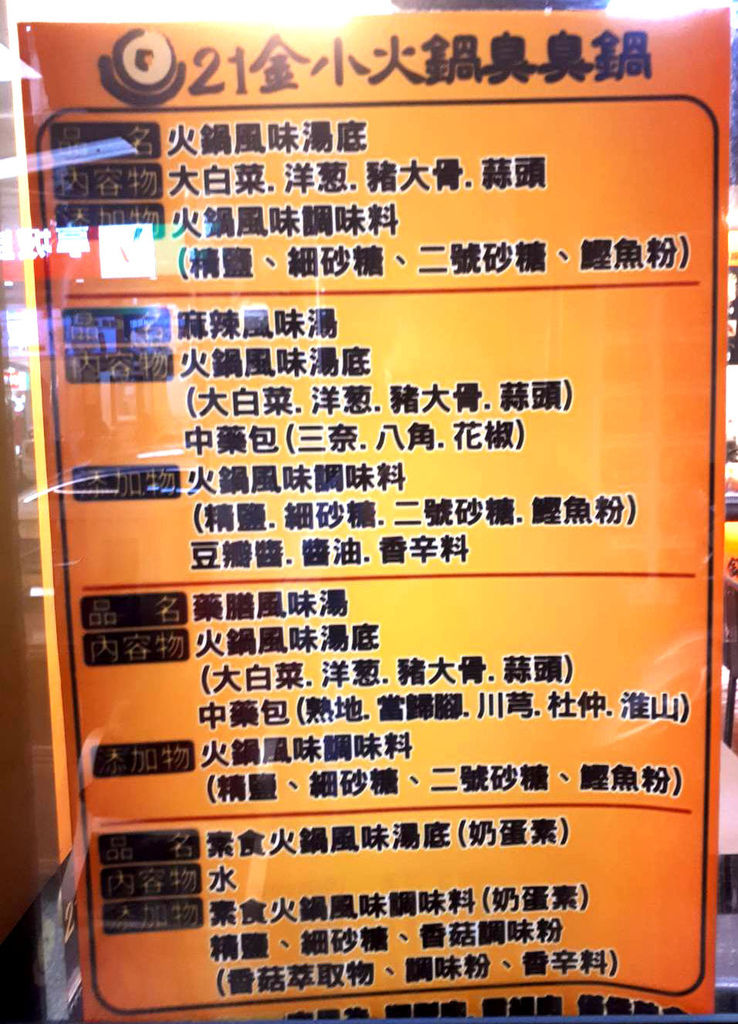 21金小火鍋臭臭鍋
品 名 火鍋風味湯底
內容物 大白菜. 洋葱. 豬大骨. 蒜頭
添加物 火鍋風味調味料
(精鹽、細砂糖、二號砂糖、鰹魚粉)
品 名 麻辣風味湯
內容物 火鍋風味湯底
(大白菜. 洋葱. 豬大骨. 蒜頭)
中藥包(三奈. 八角. 花椒)
添加物 火鍋風味調味料
(精鹽. 細砂糖. 二號砂糖. 鰹魚粉)
豆瓣醬. 醬油. 香辛料
品 名 藥膳風味湯
內容物 火鍋風味湯底
(大白菜. 洋葱. 豬大骨. 蒜頭)
中藥包(熟地. 當歸腳. 川芎. 杜仲. 淮山)
添加物 火鍋風味調味料
(精鹽、細砂糖、二號砂糖、鰹魚粉)
品 名 素食火鍋風味湯底(奶蛋素)
內容物 水
添加物 素食火鍋風味調味料(奶蛋素)
精鹽、細砂糖、香菇調味粉
(香菇萃取物、調味粉、香辛料)